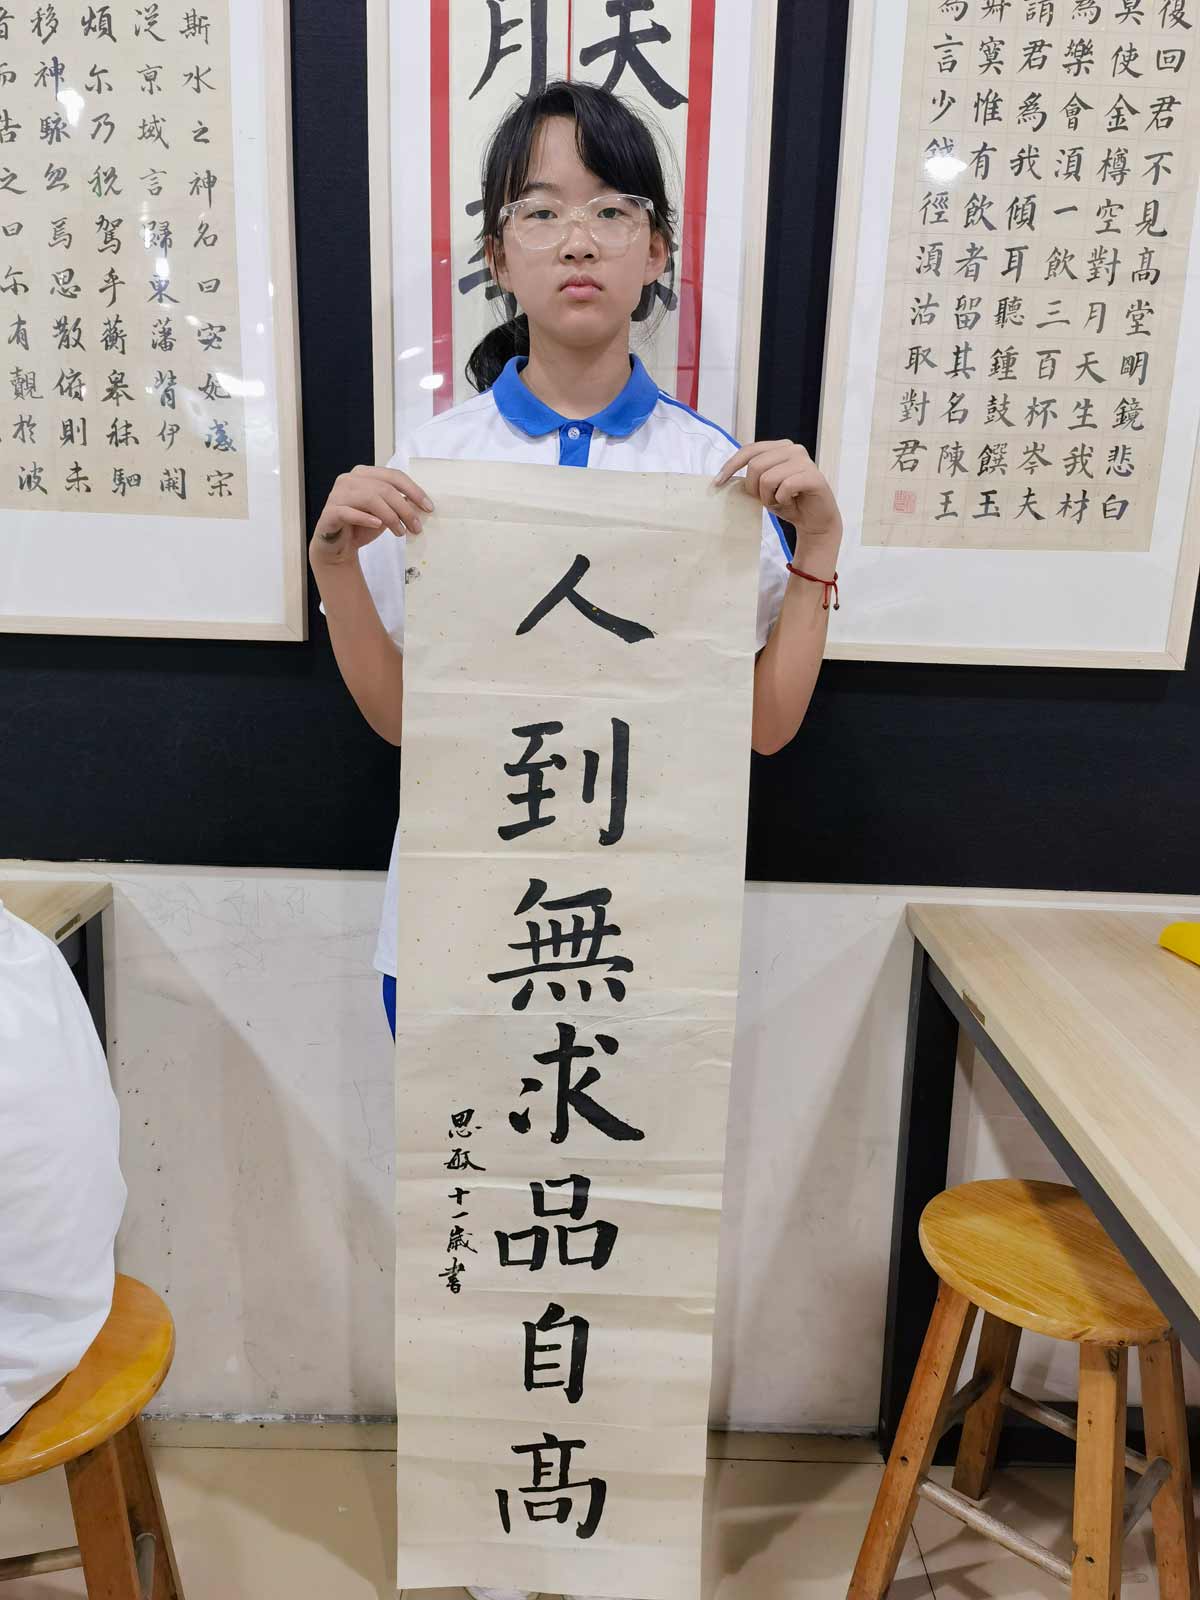 人到無求品自高
思敏十一歲書
天
月
復回君不見高堂明鏡悲白
使金樽空對月天生我材
為樂會須一飲三百杯岑夫
君為我傾耳聽鍾鼓饌玉
寞惟有飲者留其名陳王
言少錢徑須沽取對君
斯水之神名曰宓妃感宋
從京域言歸東藩背伊闕
煩尔乃税駕乎蘅皋秣駟
移神駭忽焉思散俯則未
而告之曰尔有覿於彼